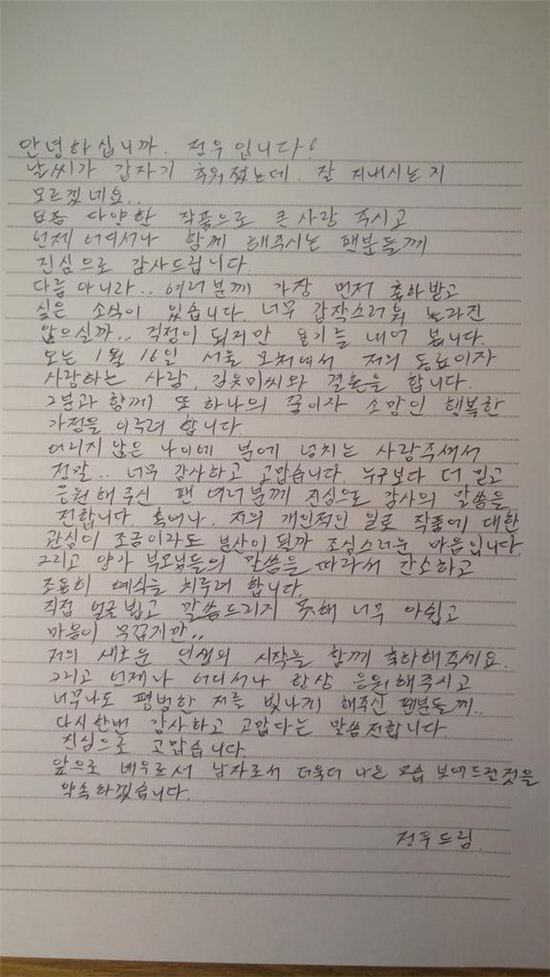 안녕하십니까. 정우입니다!
날씨가 갑자기 추워졌는데. 잘 지내시는지
모르겠네요..
요즘 다양한 작품으로 큰 사랑 주시고
언제 어디서나 함께 해주시는 팬분들께
진심으로 감사드립니다.
다름 아니라.. 여러분께 가장 먼저 축하받고
싶은 소식이 있습니다 너무 갑작스러워 놀라진
않으실까.. 걱정이 되지만 용기를 내어 봅니다.
오는 1월 16일 서울 모처에서 저의 동료이자
사랑하는 사람, 김유미씨와 결혼을 합니다.
그분과 함께 또 하나의 꿈이자 소망인 행복한
가정을 이루려 합니다.
어리지 않은 나이에 분에 넘치는 사랑주셔서
정말.. 너무 감사하고 고맙습니다. 누구보다 더 믿고
응원해주신 팬 여러분께 진심으로 감사의 말씀을
전합니다. 혹여나. 저의 개인적인 일로 작품에 대한
관심이 조금이라도 분산이 될까 조심스러운 마음입니다.
그리고 양가 부모님들의 말씀을 따라서 간소하고
조용히 예식을 치루려 합니다.
직접 얼굴 뵙고 말씀드리지 못해 너무 아쉽고
마음이 무겁지만..
저의 새로운 인생의 시작을 함께 축하해주세요.
그리고 언제나 어디서나 항상 응원해주시고
너무나도 평범한 저를 빛나게 해주신 팬분들께..
다시한번 감사하고 고맙다는 말씀전합니다.
진심으로 고맙습니다.
앞으로 배우로서 남자로서 더욱더 나은 모습 보여드릴것을
약속하겠습니다.
정우드림.